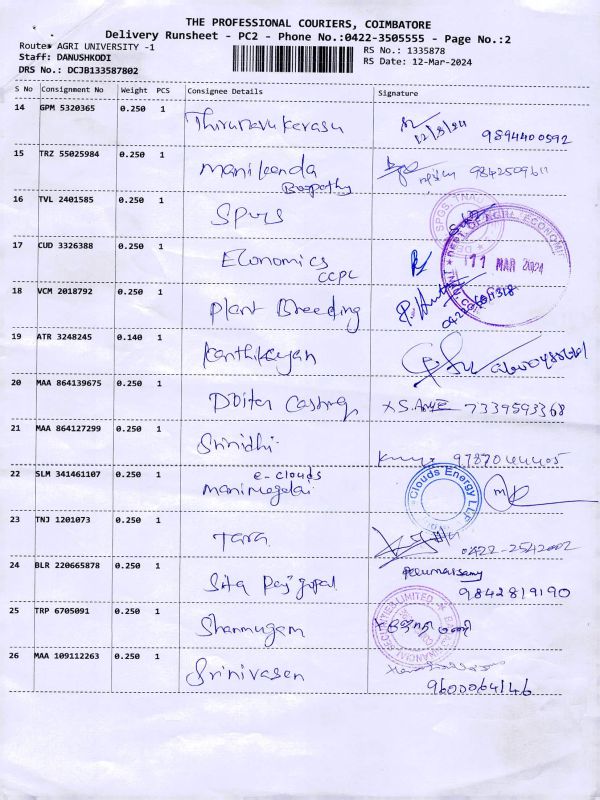 THE PROFESSIONAL COURIERS, COIMBATORE
Delivery Runsheet - PC2 - Phone No.:0422-3505555 - Page No.:2
Route: AGRI UNIVERSITY -1
RS No.: 1335878
Staff: DANUSHKODI
RS Date: 12-Mar-2024
DRS No.: DCJB133587802
S No Consignment No Weight PCS Consignee Details Signature
14 GPM 5320365 0.250 1 Thirunavukarasu 12/3/24 9894400592
15 TRZ 55025984 0.250 1 Manikanda 9842509611
Boopathy
16 TVL 2401585 0.250 1 SPGS
17 CUD 3326388 0.250 1 Economics 11 MAR 2024
CCPC
18 VCM 2018792 0.250 1 Plant Breeding
19 ATR 3248245 0.140 1 Karthikeyan
20 MAA 864139675 0.250 1 Casting 7339593368
21 MAA 864127299 0.250 1 Srinidhi 9787044405
22 SLM 341461107 0.250 1 e-clouds Clouds Energy LLP
Manimegalai
23 TNJ 1201073 0.250 1 Tara 0422-2542002
24 BLR 220665878 0.250 1 Sita Rajgopal Perumalsamy
9842819190
25 TRP 6705091 0.250 1 Shanmugam
26 MAA 109112263 0.250 1 Srinivasan
9600064146